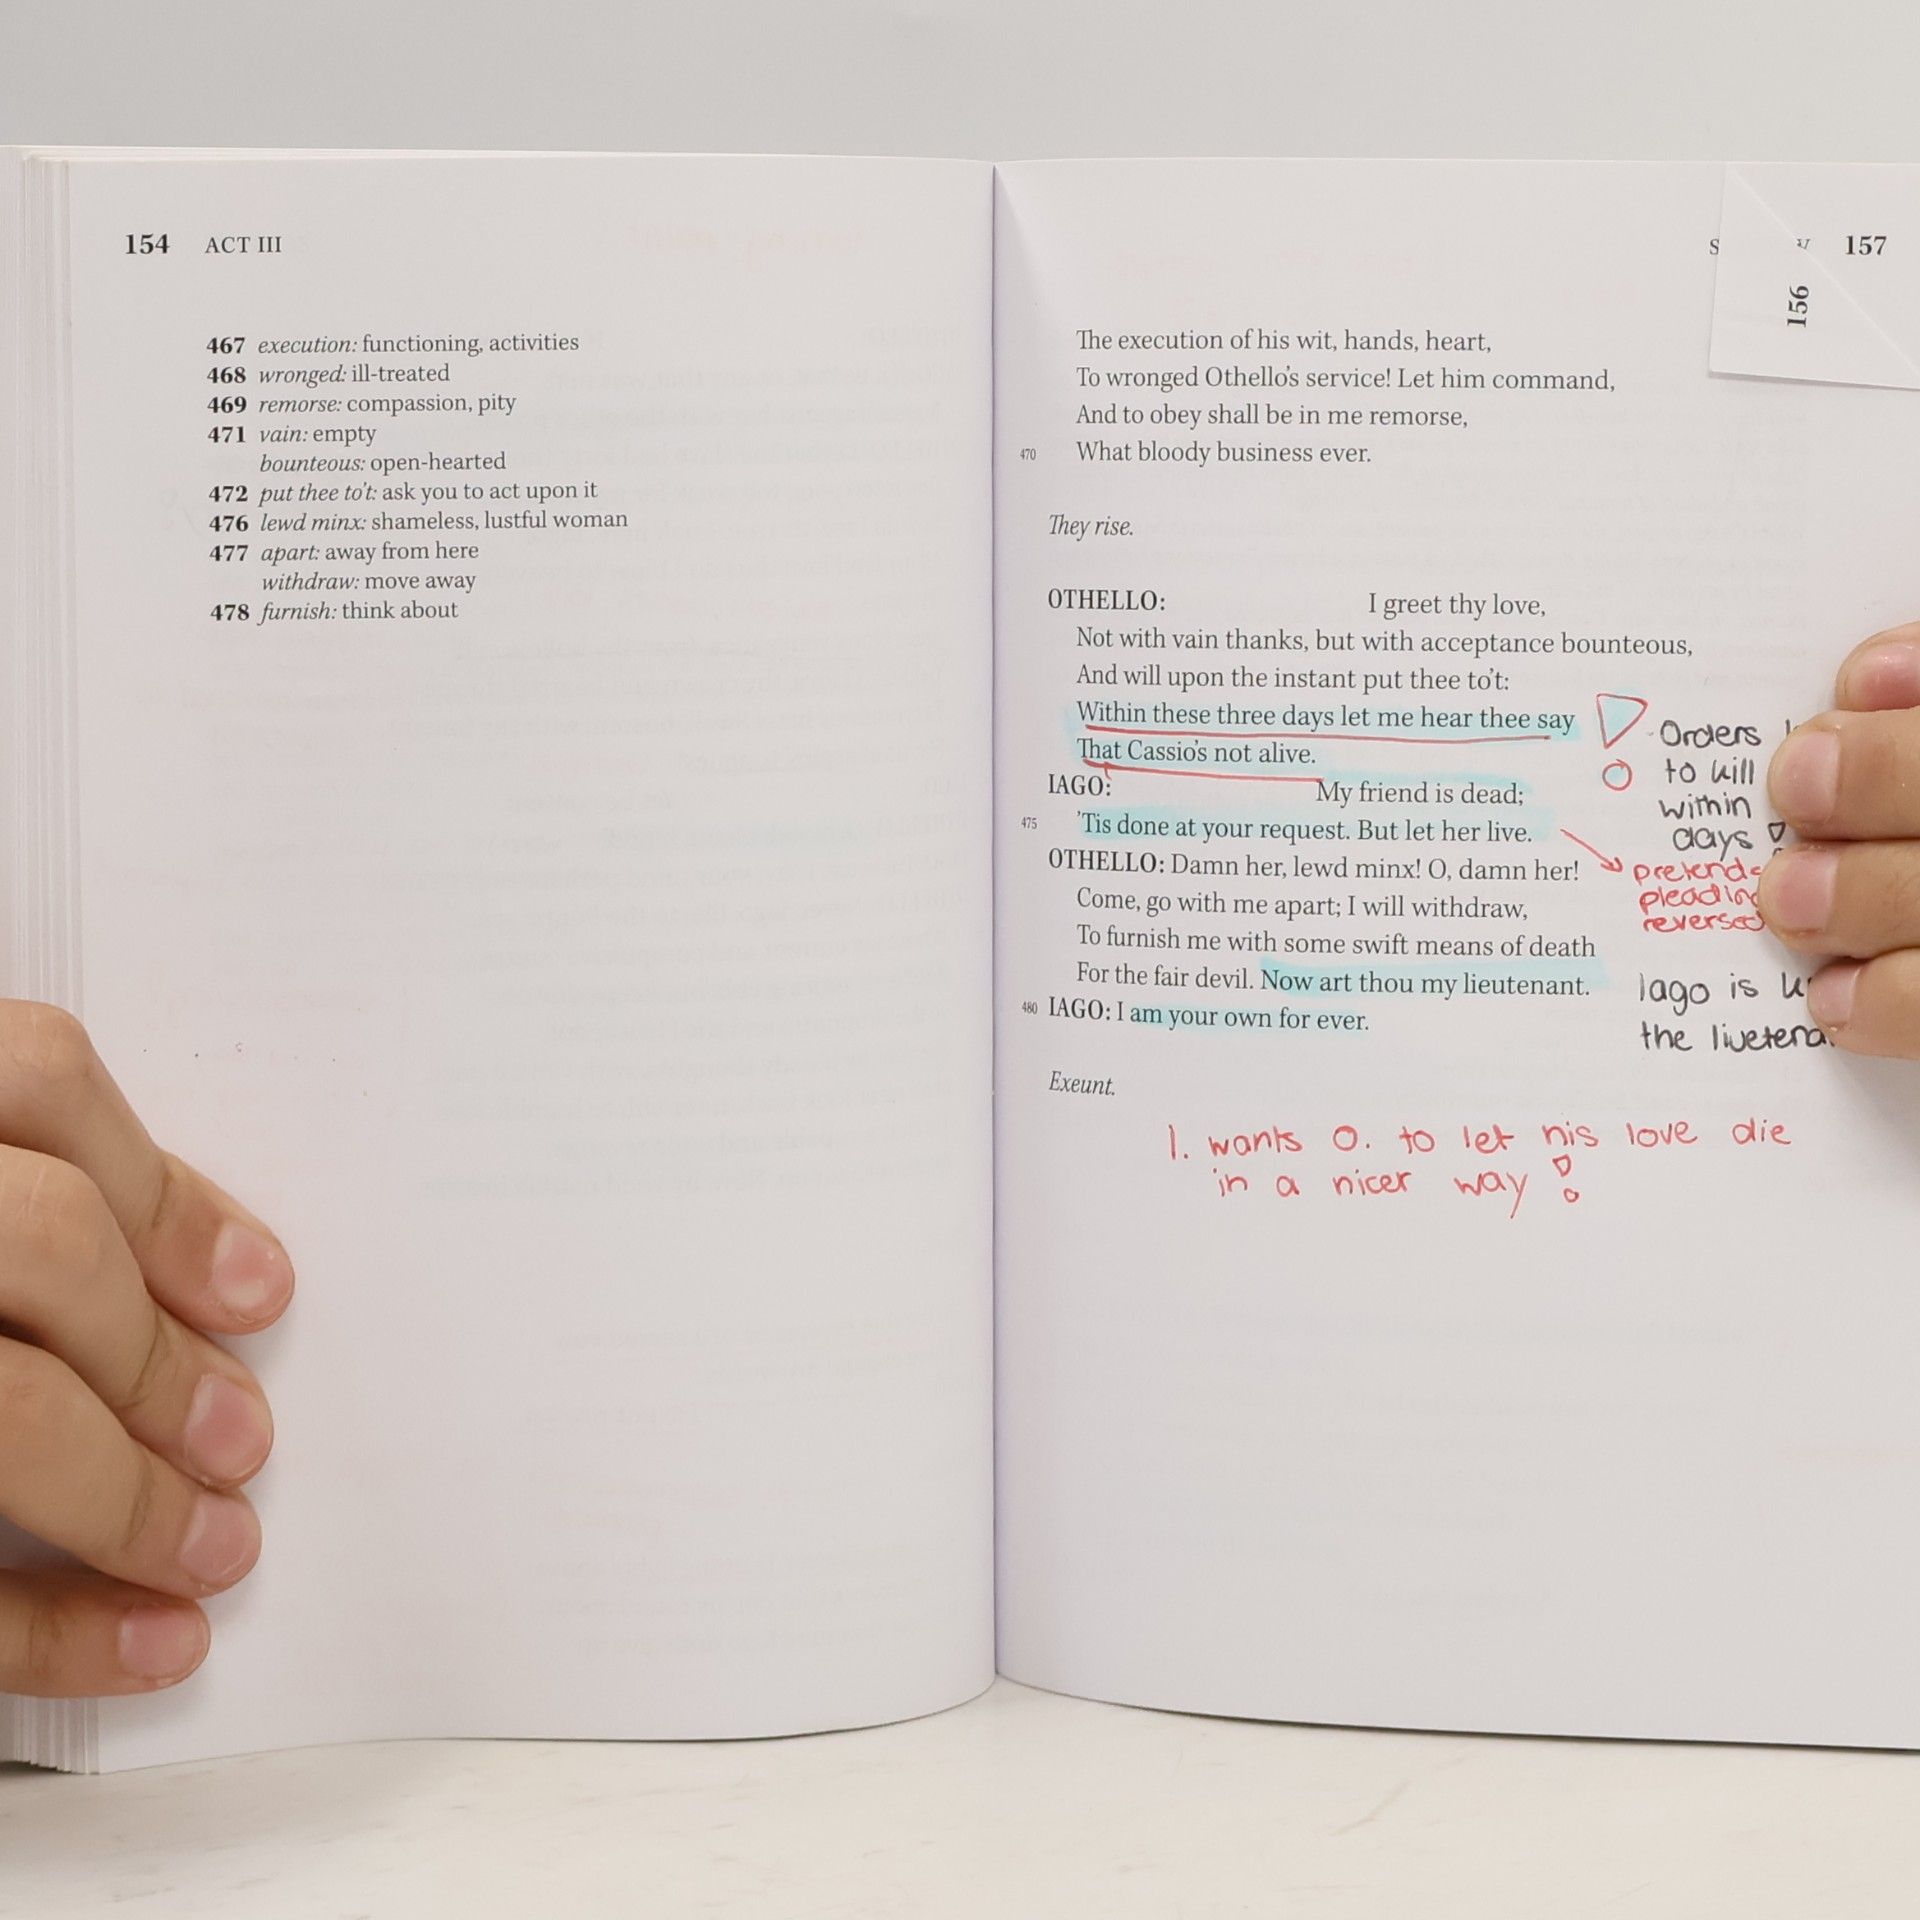 154 ACT III
467 execution: functioning, activities
468 wronged: ill-treated
469 remorse: compassion, pity
471 vain: empty
bounteous: open-hearted
472 put thee to't: ask you to act upon it
476 lewd minx: shameless, lustful woman
477 apart: away from here
withdraw: move away
478 furnish: think about
157
156
The execution of his wit, hands, heart,
To wronged Othello's service! Let him command,
And to obey shall be in me remorse,
470 What bloody business ever.
They rise.
OTHELLO: I greet thy love,
Not with vain thanks, but with acceptance bounteous,
And will upon the instant put thee to't:
Within these three days let me hear thee say
That Cassio's not alive.
IAGO: My friend is dead;
475 'Tis done at your request. But let her live.
OTHELLO: Damn her, lewd minx! O, damn her!
Come, go with me apart; I will withdraw,
To furnish me with some swift means of death
For the fair devil. Now art thou my lieutenant.
480 IAGO: I am your own for ever.
Exeunt.
Orders
to kill
within
days !
pretends
pleading
reversed
Iago is
the
I. wants O. to let his love die
in a nicer way !